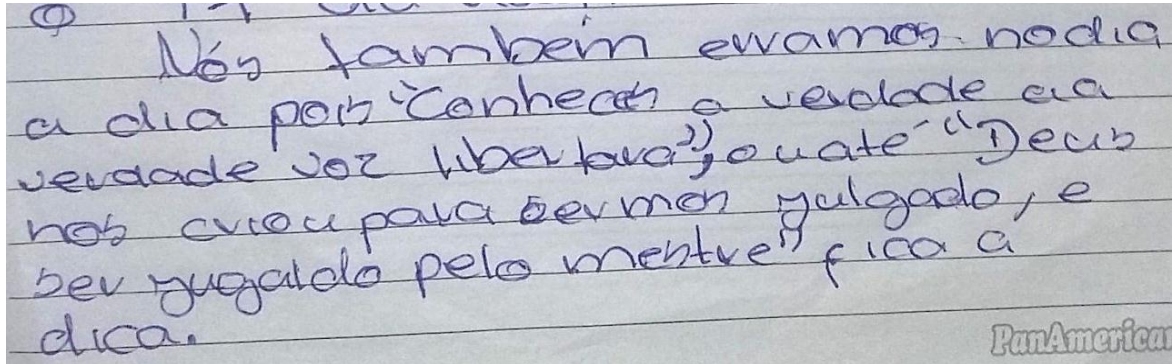 Nós tambeḿ erramos. nodia
a dia pois "Conheces a verdade e a
verdade voz libertara", ou ate "Deus
nos criou para sermos julgado, e
ser jugaldo pelo mestre" fica a
dica.
PanAmerica